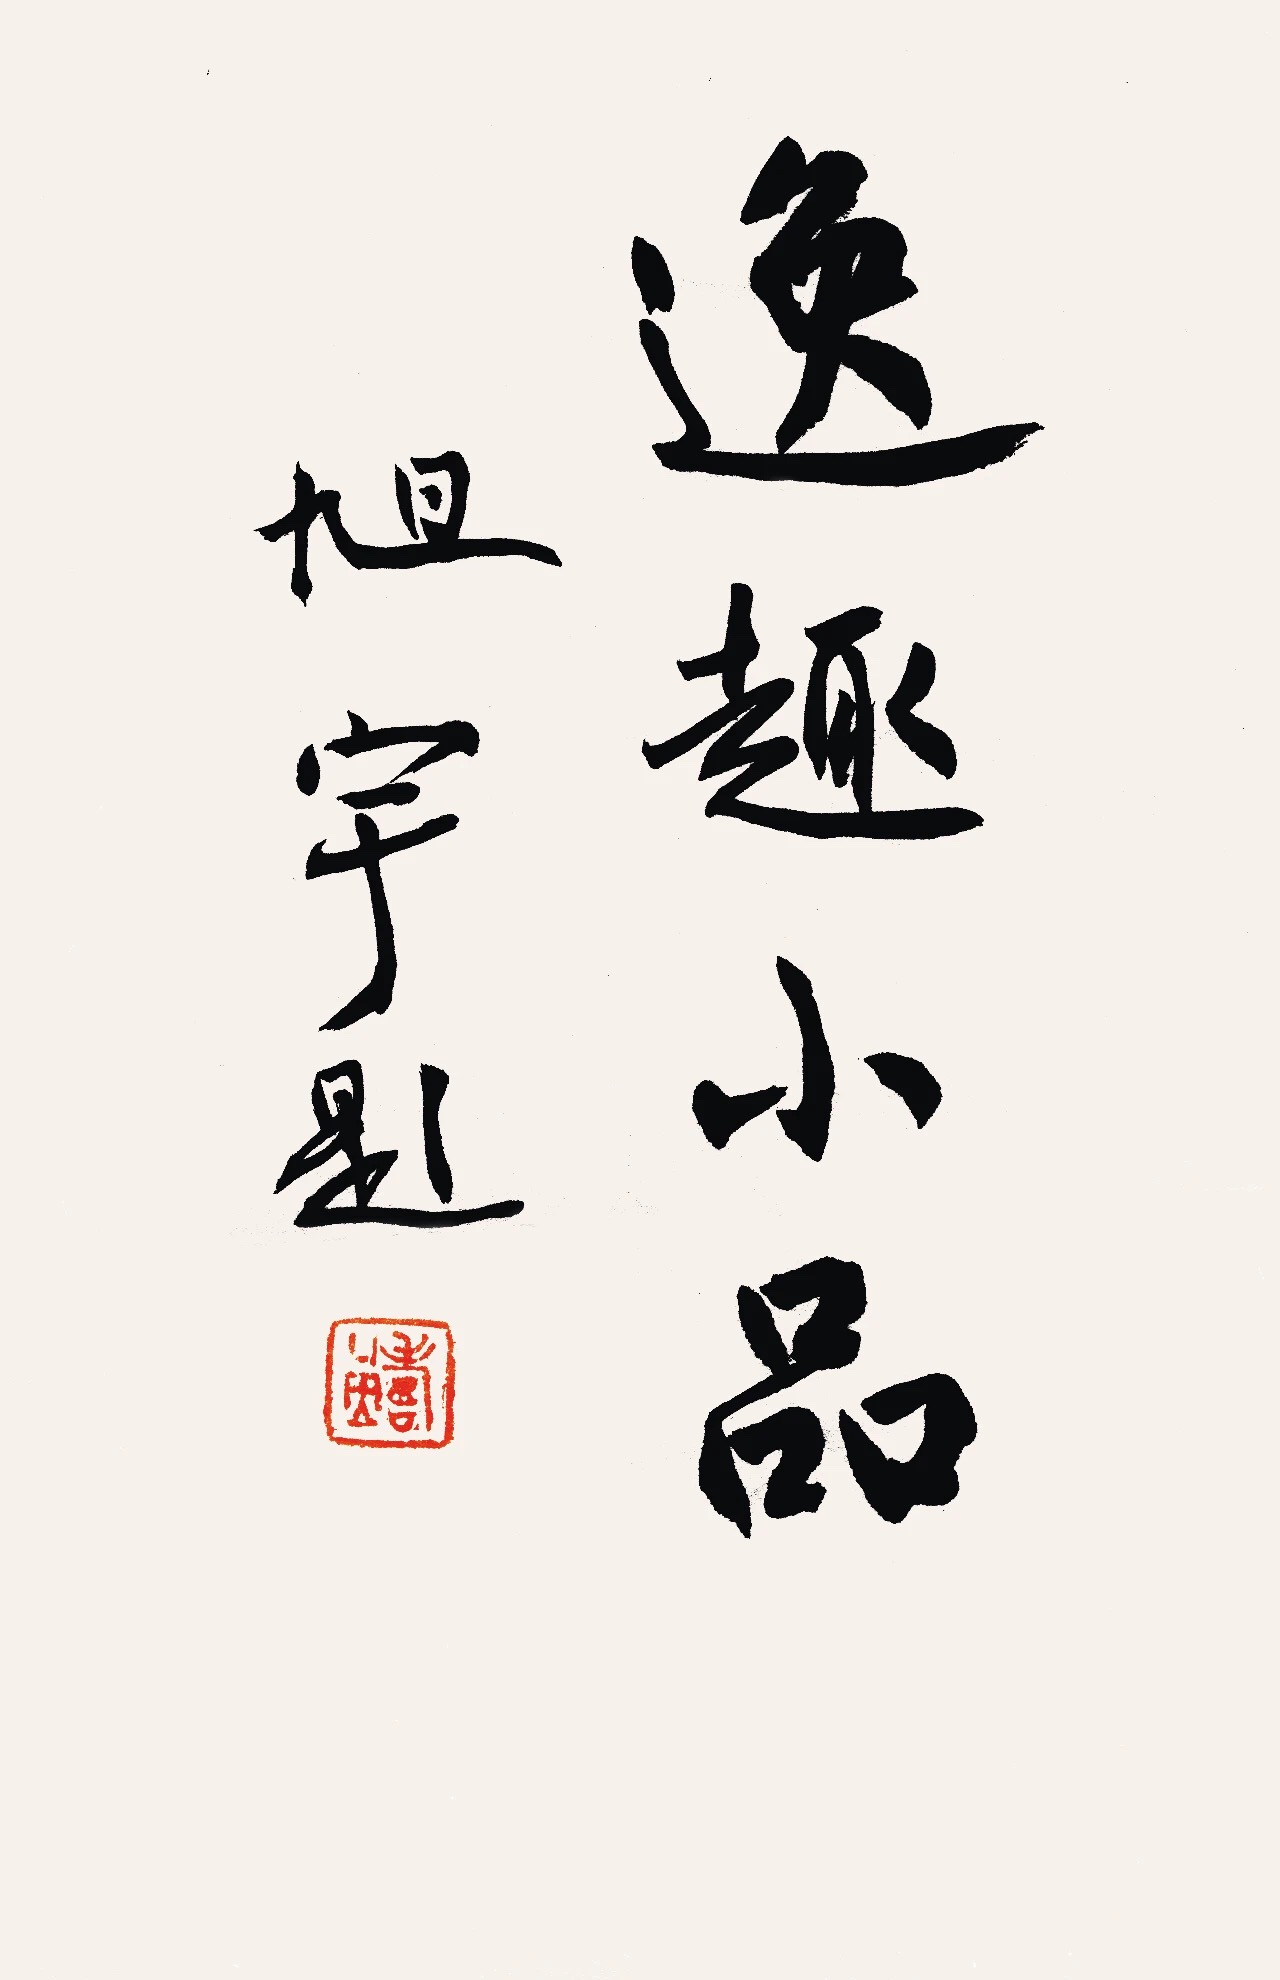 逸趣小品
旭宇题